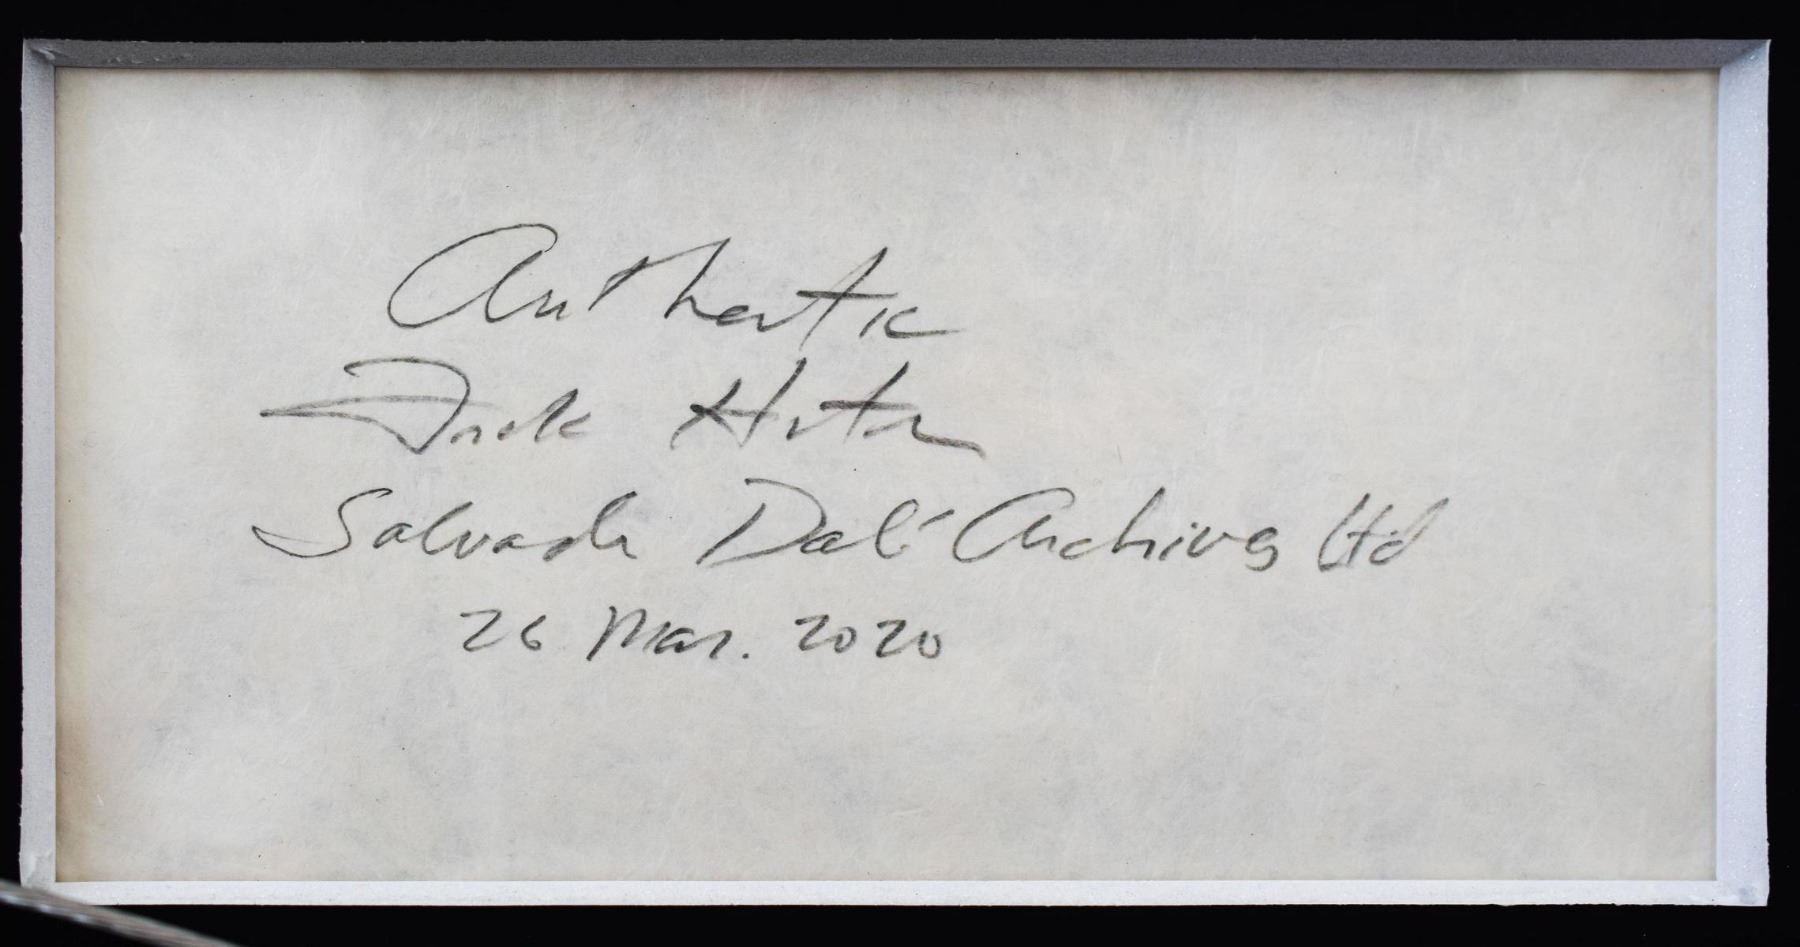 Authentic
Frank Hunter
Salvador Dalí Archives Ltd
26 Mar. 2020